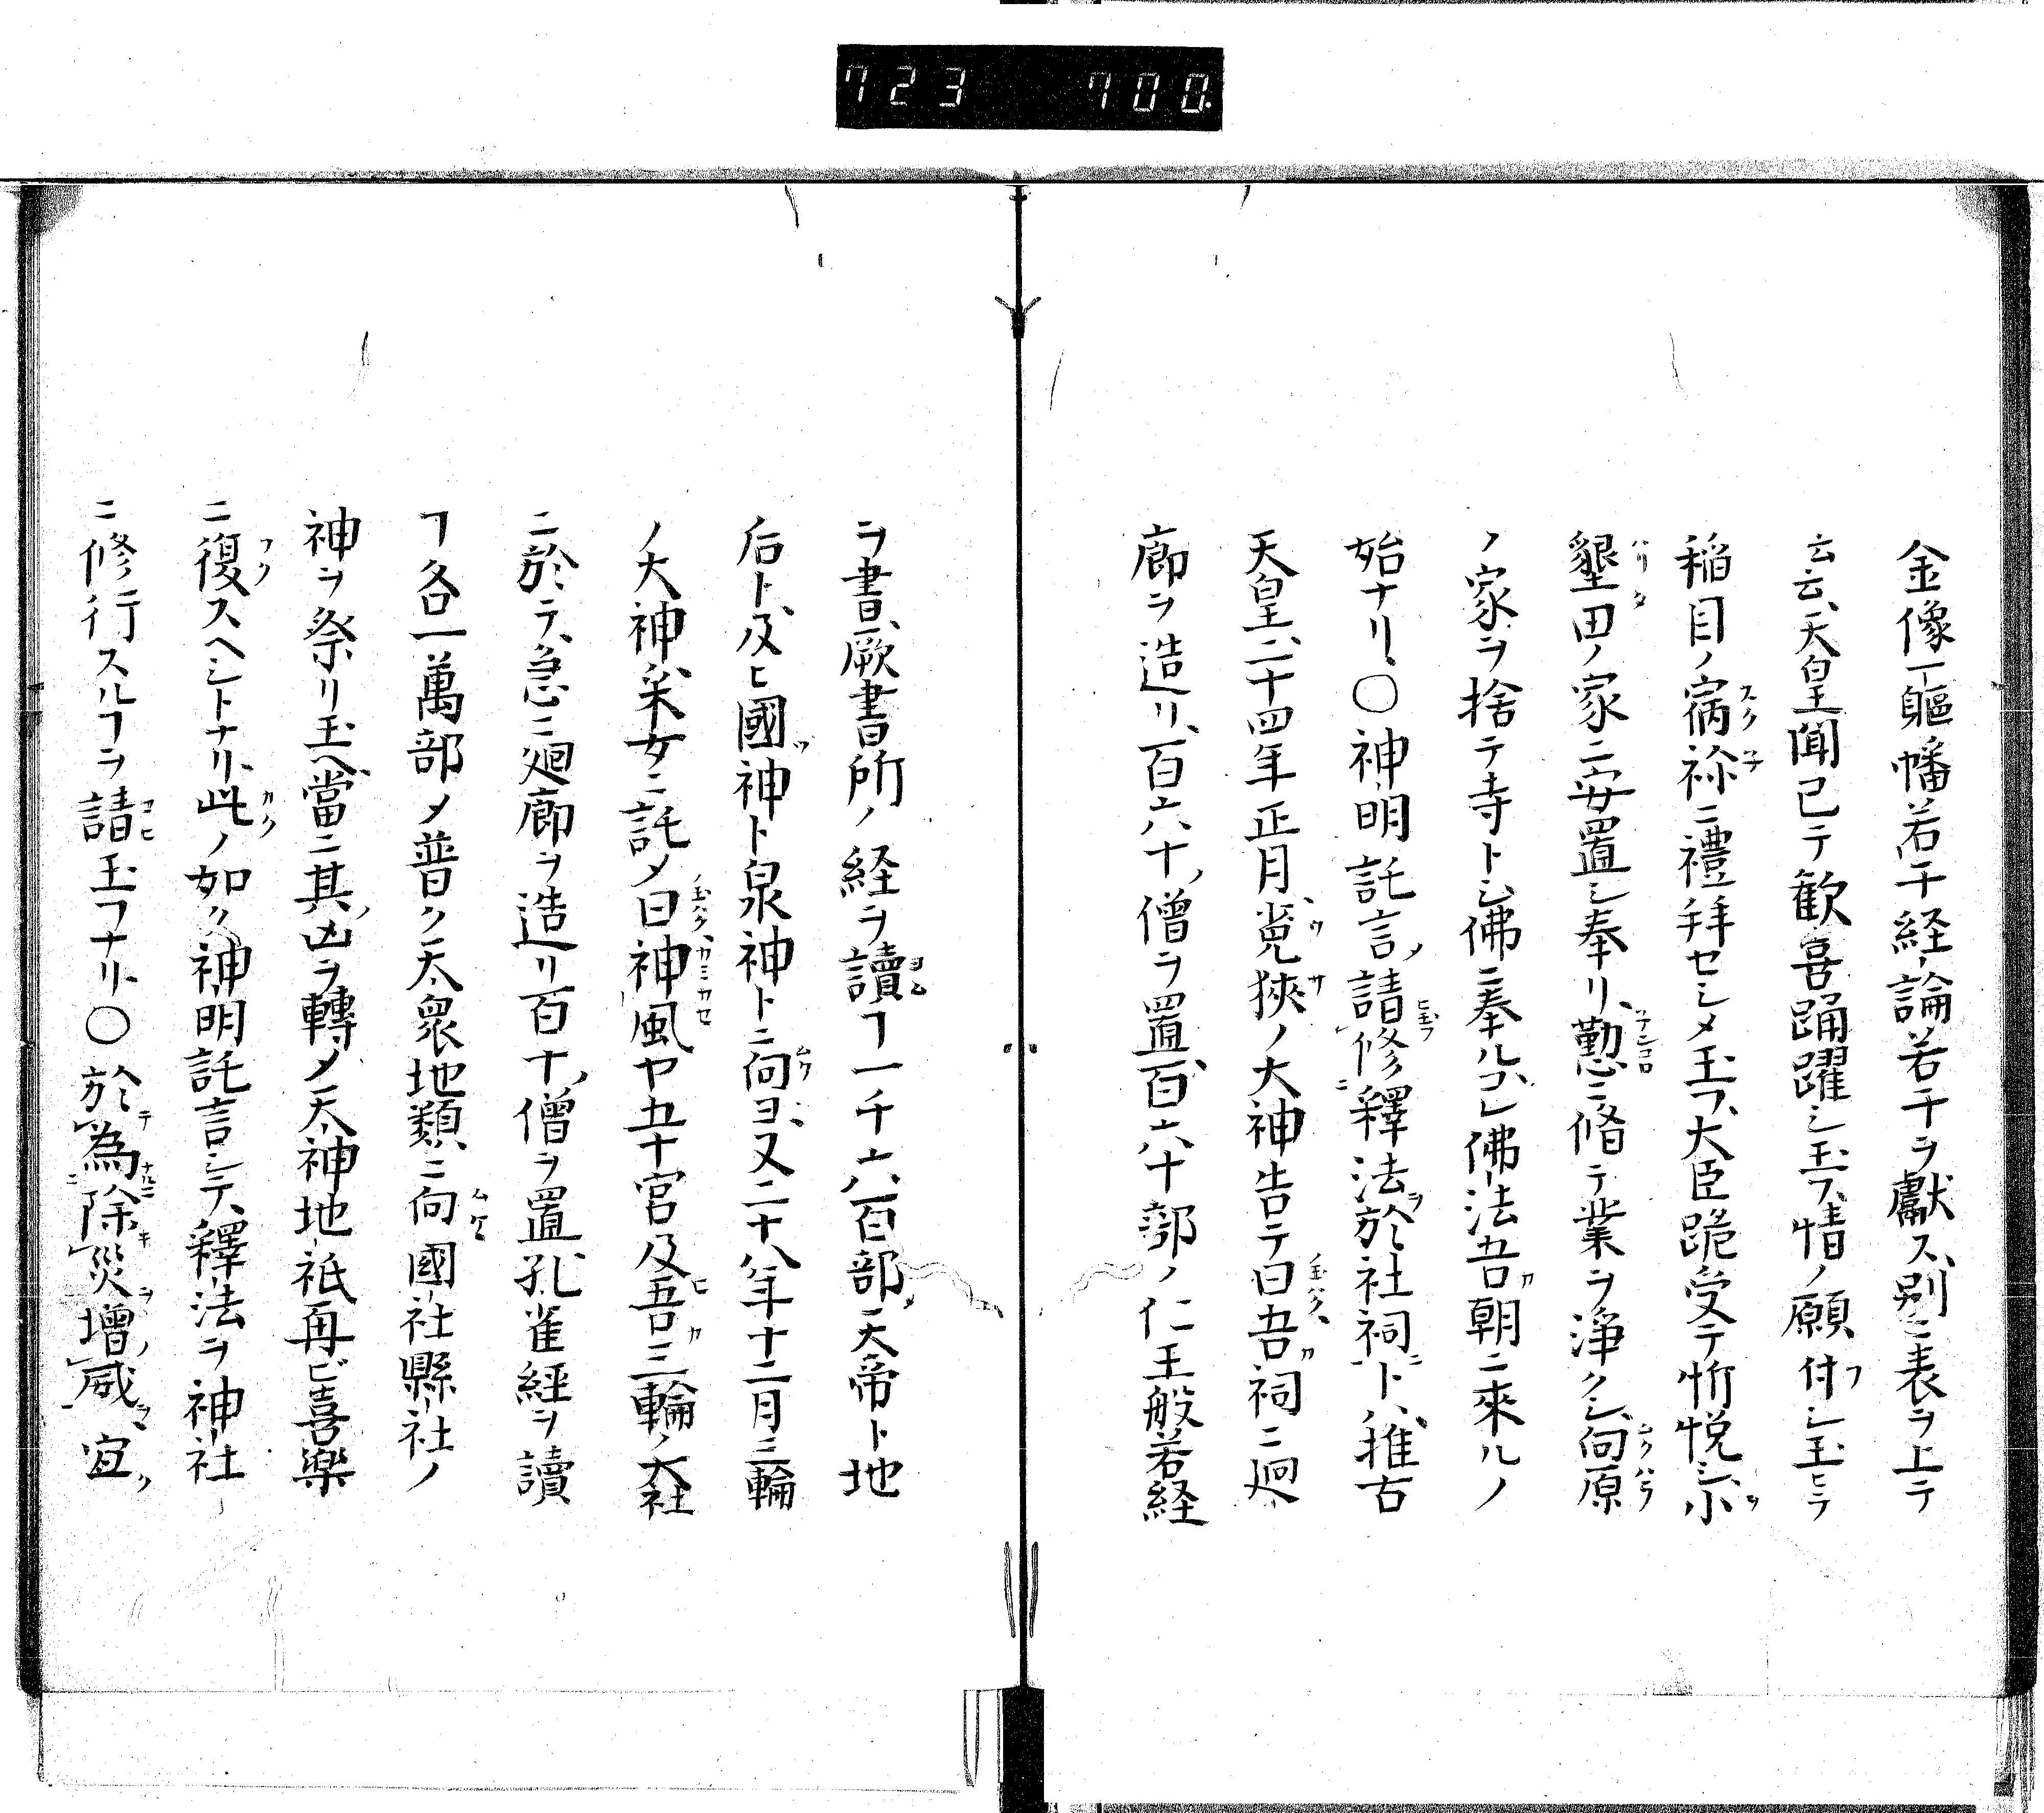 723 700.
金像一軀幡若干経論若干ヲ獻ス、別ニ表ヲ上テ
云云、天皇聞已テ歓喜踊躍シ玉フ、情ノ願付シ玉ヒテ
稲目ノ宿祢ニ禮拜セシメ玉フ、大臣跪受テ忻悦シ、小
墾田ノ家ニ安置シ奉リ、懃ニ脩テ業ヲ浄クシ、向原
ノ家ヲ捨テ寺トシ佛ニ奉ル、コレ佛法吾朝ニ來ルノ
始ナリ、〇神明託言、請修釋法於社祠ト、推古
天皇、二十四年正月、莵狹ノ大神告テ曰吾祠ニ廻
廊ヲ造リ、百六十、僧ヲ置、百六十部ノ仁王般若経
ヲ書、厥書所ノ経ヲ讀ヿ一千六百部、天帝ト地
后ト、及ヒ國神ト泉神トニ向ヨ、又二十八年十二月三輪
ノ大神采女ニ託メ曰神風ヤ五十宮及吾三輪ノ大社
ニ於テ、急ニ廻廊ヲ造リ百十、僧ヲ置、孔雀經ヲ讀
ヿ各一萬部メ普ク天衆地類ニ向國社縣社ノ
神ヲ祭リ玉ヘ、當ニ其凶ヲ轉メ天神地祇再ビ喜樂
ニ復スヘシトナリ、此ノ如ク神明託言シテ、釋法ヲ神社
ニ修行スルヿヲ請玉フナリ、〇於為除災増威宜